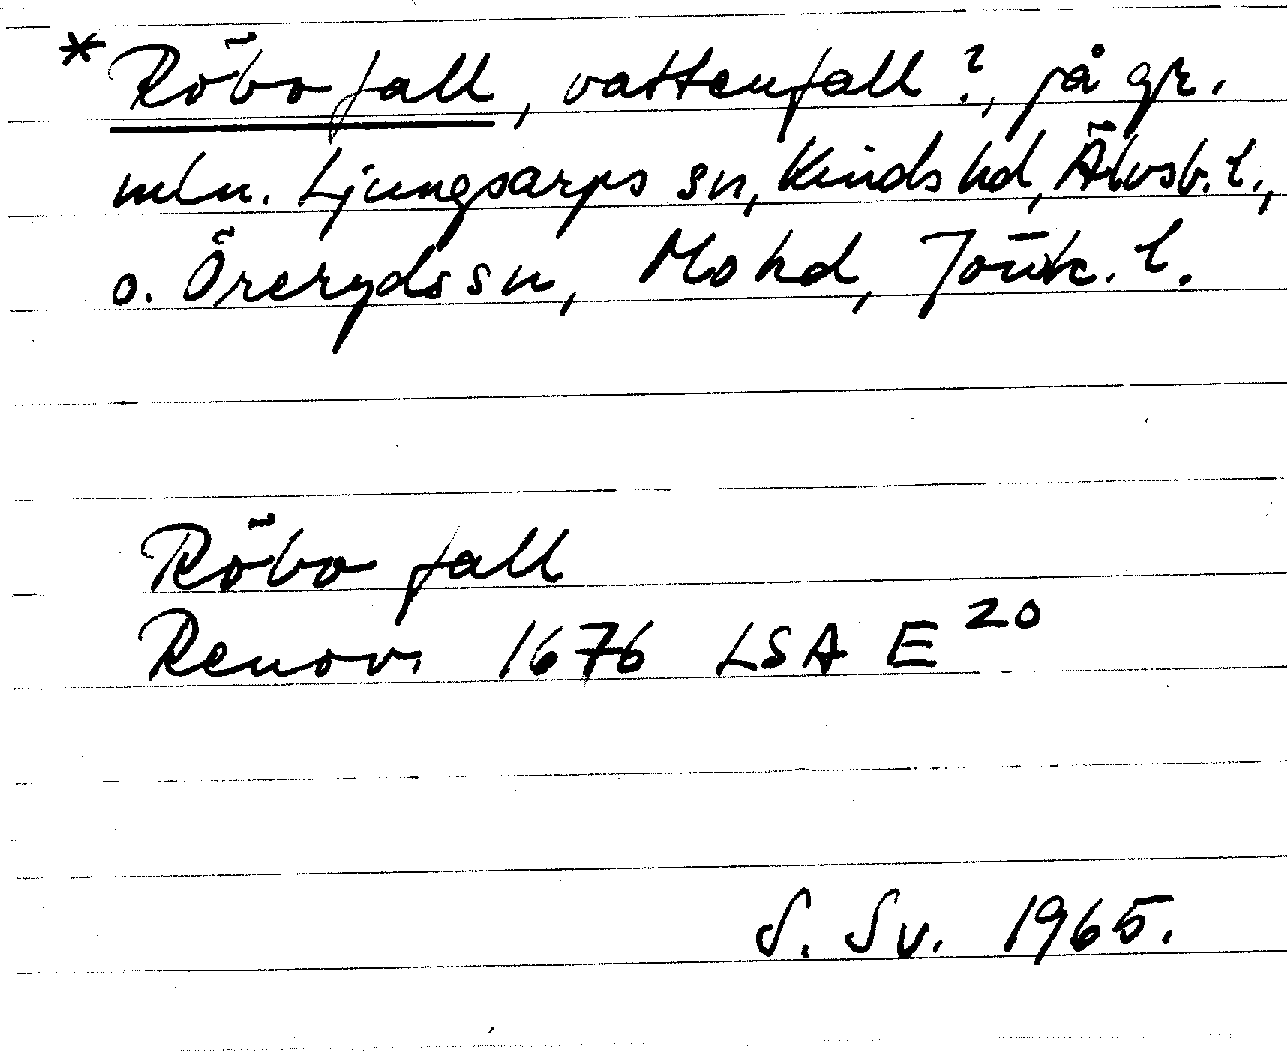 * Röbo fall, vattenfall?, på gr.
mln. Ljungsarps sn, Kinds hd, Älvsb. l.,
o. Öreryds sn, Mo hd, Jönk. l.
Röbo fall
Renov. 1676 LSA E 20
S. Sv. 1965.